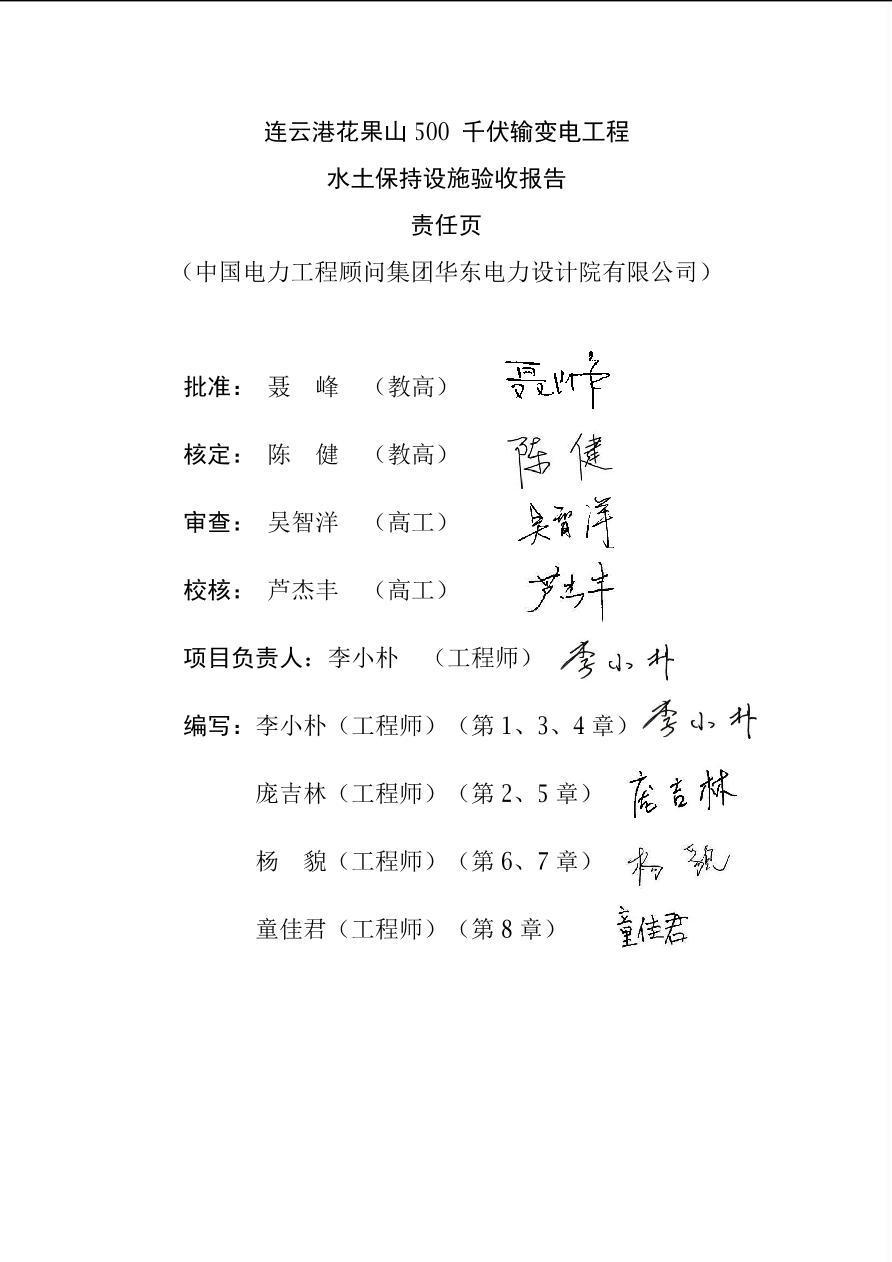 连云港花果山 500 千伏输变电工程
水土保持设施验收报告
责任页
（中国电力工程顾问集团华东电力设计院有限公司）
批准： 聂 峰 （教高） 聂峰
核定： 陈 健 （教高） 陈健
审查： 吴智洋 （高工） 吴智洋
校核： 芦杰丰 （高工） 芦杰丰
项目负责人：李小朴 （工程师） 李小朴
编写：李小朴（工程师）（第 1、3、4 章） 李小朴
庞吉林（工程师）（第 2、5 章） 庞吉林
杨 貌（工程师）（第 6、7 章） 杨貌
童佳君（工程师）（第 8 章） 童佳君